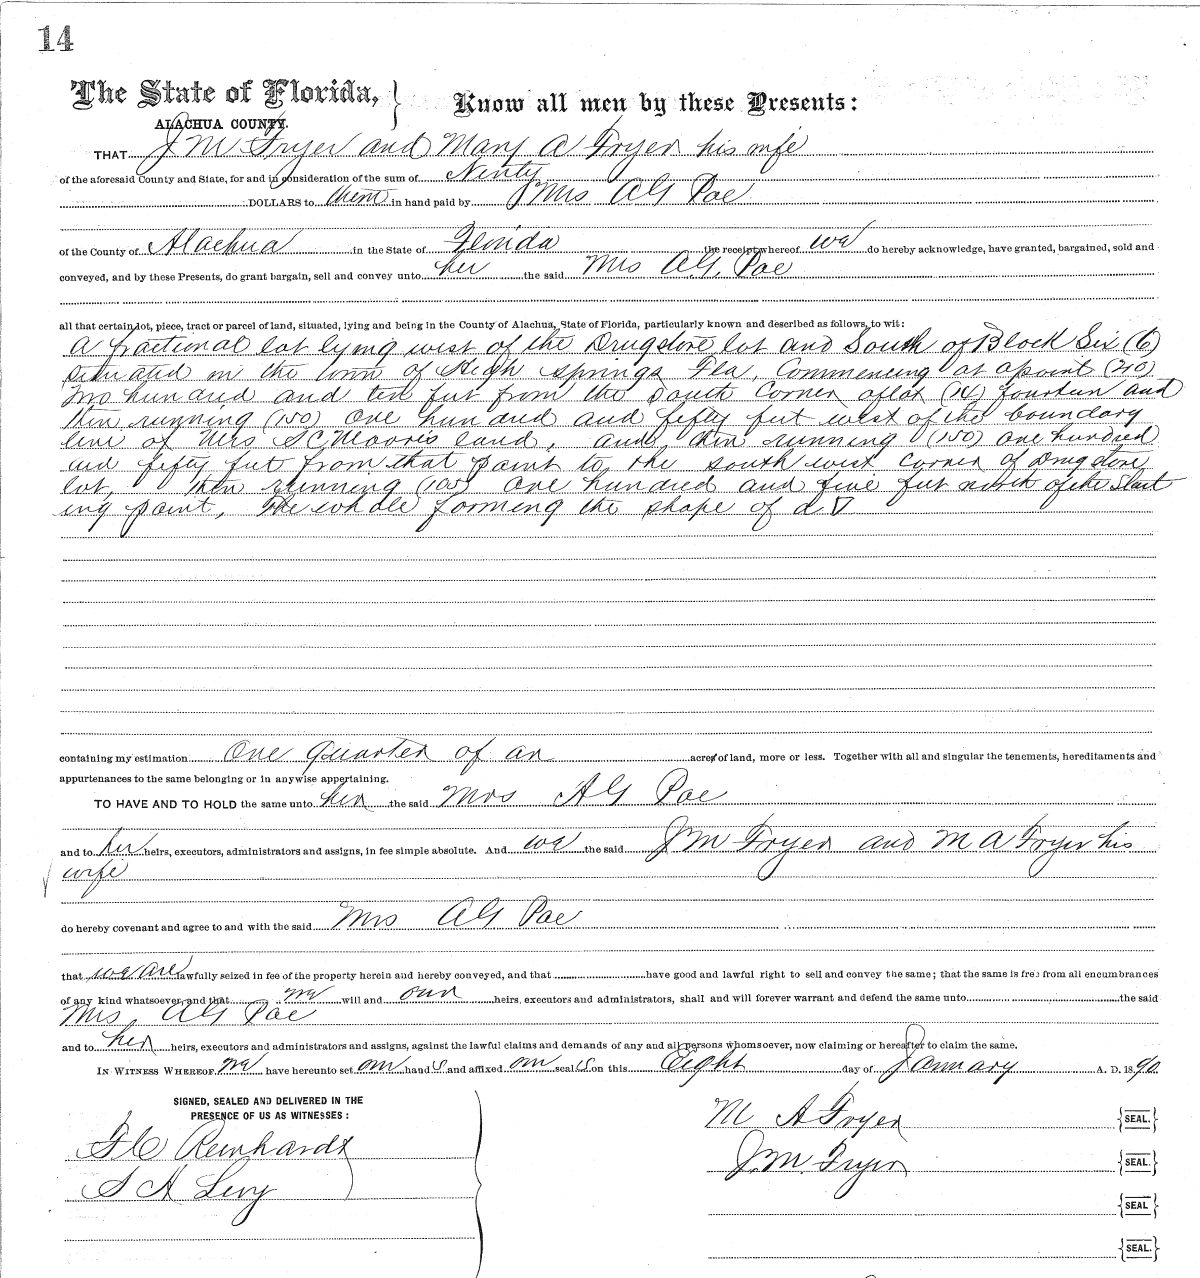 14
The State of Florida,
ALACHUA COUNTY.
Know all men by these Presents:
THAT J M Fryer and Mary A Fryer his wife
of the aforesaid County and State, for and in consideration of the sum of Ninty
DOLLARS to them in hand paid by Mrs A G Poe
of the County of Alachua in the State of Florida the receipt whereof we do hereby acknowledge, have granted, bargained, sold and
conveyed, and by these Presents, do grant bargain, sell and convey unto her the said Mrs A.G. Poe
all that certain lot, piece, tract or parcel of land, situated, lying and being in the County of Alachua, State of Florida, particularly known and described as follows, to wit:
A fractional lot lying west of the Drugstore lot and South of Block Six (6)
situated in the town of High Springs Fla, Commencing at a point (210)
Two hundred and ten feet from the South Corner of lot (14) fourteen and
then running (150) one hundred and fifty feet west of the boundary
line of Mrs S C Moores land, and then running (150) one hundred
and fifty feet from that point to the south west corner of Drugstore
lot, then running (105) one hundred and five feet north of the start
ing point, the whole forming the shape of a ▽
containing my estimation One quarter of an acre of land, more or less. Together with all and singular the tenements, hereditaments and
appurtenances to the same belonging or in anywise appertaining.
TO HAVE AND TO HOLD the same unto her the said Mrs A G Poe
and to her heirs, executors, administrators and assigns, in fee simple absolute. And we the said J M Fryer and M A Fryer his
wife
do hereby covenant and agree to and with the said Mrs A G Poe
that we are lawfully seized in fee of the property herein and hereby conveyed, and that have good and lawful right to sell and convey the same; that the same is free from all encumbrances
of any kind whatsoever, and that we will and our heirs, executors and administrators, shall and will forever warrant and defend the same unto the said
Mrs A G Poe
and to her heirs, executors and administrators and assigns, against the lawful claims and demands of any and all persons whomsoever, now claiming or hereafter to claim the same.
IN WITNESS WHEREOF we have hereunto set our hand s and affixed our seal s on this Eight day of January A. D. 1890
SIGNED, SEALED AND DELIVERED IN THE
PRESENCE OF US AS WITNESSES:
M A Fryer {SEAL.}
F C Reinhardt
J.M. Fryer {SEAL.}
S H Levy
{SEAL}
{SEAL.}